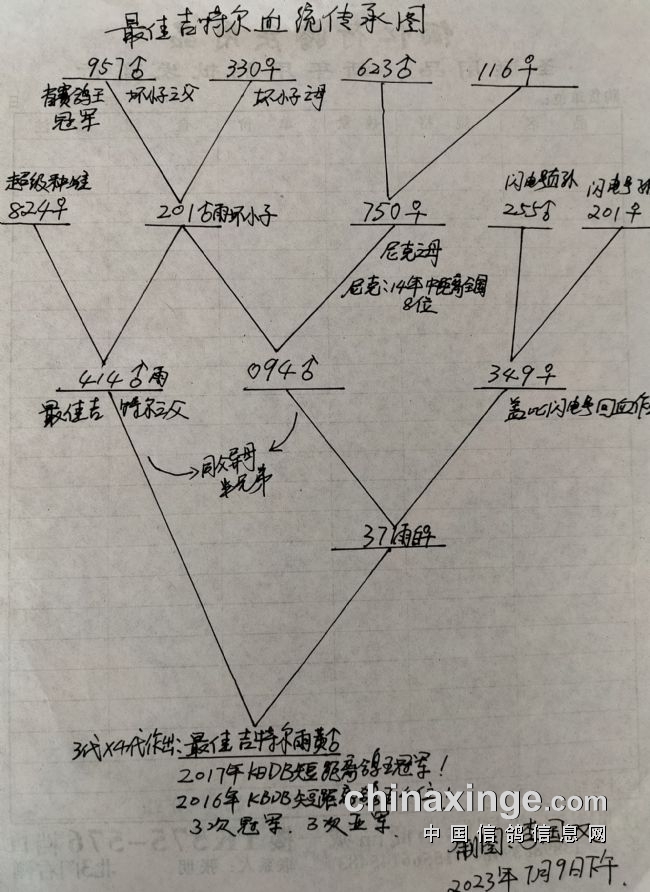 最佳吉特尔血统传承图
957♂ 330♀ 623♂ 116♀
有赛鸽王 坏小子之父 坏小子之母
冠军
超级种雌 闪电号直孙 闪电号孙
824♀ 201♂雨坏小子 750♀ 255♂ 201♀
尼克之母
尼克:14年中距离全国
8位
414♂雨 094♂ 349♀
最佳吉特尔之父 盖比闪电号回血作
同父异母
半兄弟
37雨白♀
3代X4代作出:最佳吉特尔雨黄♂
2017年KBDB短距离鸽王冠军!
2016年KBDB短距离
3次冠军.3次亚军.
chinaxinge.com
中国信鸽信息网
制图:
2023年7月9日下午.